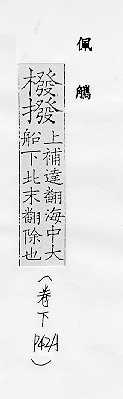 佩觿
橃撥
上補達翻海中大
船下北末翻除也
(卷下
P42A)